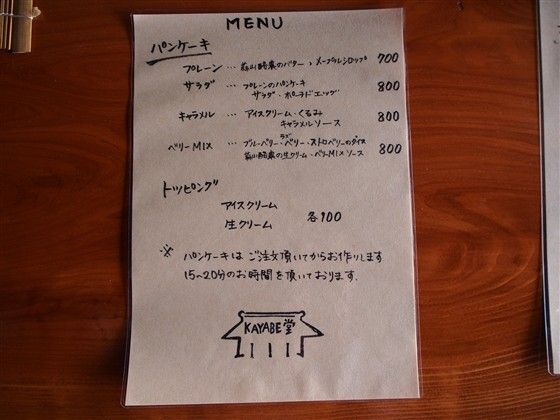 MENU
パンケーキ
プレーン … 蒜山酪農のバター、メープルシロップ 700
サラダ … プレーンのパンケーキ
サラダ・ポーチドエッグ 800
キャラメル … アイスクリーム・くるみ
キャラメルソース 800
ベリーMIX … ブルーベリー・ラズベリー・ストロベリーのダイス
蒜山酪農の生クリーム・ベリーMIXソース 800
トッピング
アイスクリーム
生クリーム 各100
※ パンケーキは ご注文頂いてからお作りします
15~20分のお時間を頂いております.
KAYABE堂